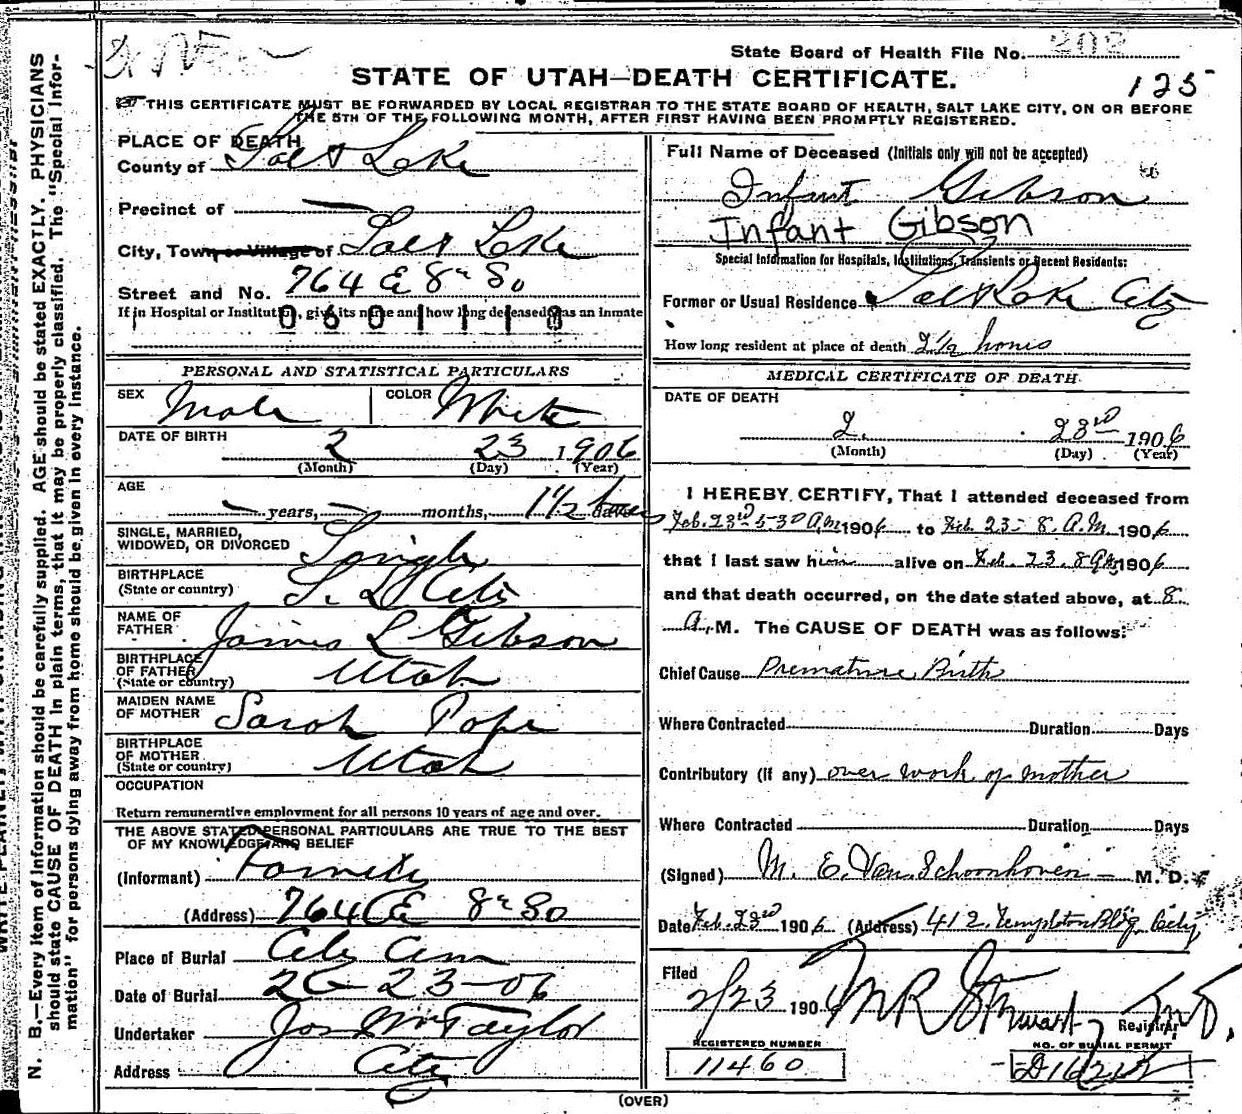 State Board of Health File No. 202
STATE OF UTAH—DEATH CERTIFICATE.
125
THIS CERTIFICATE MUST BE FORWARDED BY LOCAL REGISTRAR TO THE STATE BOARD OF HEALTH, SALT LAKE CITY, ON OR BEFORE
THE 5TH OF THE FOLLOWING MONTH, AFTER FIRST HAVING BEEN PROMPTLY REGISTERED.
N. B.—Every item of information should be carefully supplied. AGE should be stated EXACTLY. PHYSICIANS
should state CAUSE OF DEATH in plain terms, that it may be properly classified. The "Special Infor-
mation" for persons dying away from home should be given in every instance.
PLACE OF DEATH
County of Salt Lake
Precinct of —
City, Town or Village of Salt Lake
Street and No. 764 E 8th So
If in Hospital or Institution, give its name and how long deceased was an inmate
0601110
PERSONAL AND STATISTICAL PARTICULARS
SEX Male COLOR White
DATE OF BIRTH 2 23 1906
(Month) (Day) (Year)
AGE — years, — months, 1½ hours days
SINGLE, MARRIED,
WIDOWED, OR DIVORCED Single
BIRTHPLACE
(State or country) S. L City
NAME OF
FATHER James L Gibson
BIRTHPLACE
OF FATHER
(State or country) Utah
MAIDEN NAME
OF MOTHER Sarah Pope
BIRTHPLACE
OF MOTHER
(State or country) Utah
OCCUPATION
Return remunerative employment for all persons 10 years of age and over.
THE ABOVE STATED PERSONAL PARTICULARS ARE TRUE TO THE BEST
OF MY KNOWLEDGE AND BELIEF
(Informant)
(Address) 764 E 8th So
Place of Burial City Cem
Date of Burial 23-06
Undertaker Jos Wm Taylor
Address City
Full Name of Deceased (Initials only will not be accepted)
Infant Gibson
Infant Gibson
Special Information for Hospitals, Institutions, Transients or Recent Residents:
Former or Usual Residence Salt Lake City
How long resident at place of death 2½ hours
MEDICAL CERTIFICATE OF DEATH
DATE OF DEATH
2. 23rd 1906
(Month) (Day) (Year)
I HEREBY CERTIFY, That I attended deceased from
Feb. 23rd 5-30 A.M 1906 to Feb. 23- 8. A.M. 1906
that I last saw him alive on Feb. 23. 8 AM 1906
and that death occurred, on the date stated above, at 8.
A. M. The CAUSE OF DEATH was as follows:
Chief Cause Premature Birth
Where Contracted Duration Days
Contributory (if any) over work of mother
Where Contracted Duration Days
(Signed) M. E. Van Schoonhoven — M. D.
Date Feb. 23rd 1906 (Address) 412 Templeton Bldg City
Filed
2/23 1906 M R Stewart M.D. Registrar
REGISTERED NUMBER
11460
NO. OF BURIAL PERMIT
(OVER)